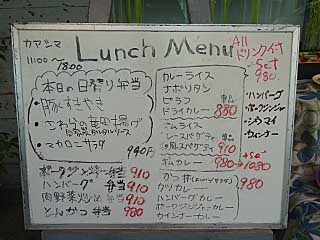 カヤシマ
Lunch Menu
11:00〜
18:00
Allドリンク付
Set
980
本日の日替り弁当
・豚すきやき
・マカロニサラダ
940円
ポークジンジャー弁当 910
ハンバーグ 弁当 910
肉野菜炒め弁当 910
とんかつ 弁当 980
カレーライス
ナポリタン
ピラフ 単品
ドライカレー 880
オムライス
ミートスパゲティ 単品
和風スパゲティ 910
キムカレー 930 → 1080
+Set
・ハンバーグ
・ポークジンジャー
・シュウマイ
・ウィンナー
カツ丼
カツカレー 980
ハンバーグカレー
ポークジンジャーカレー
ウインナーカレー